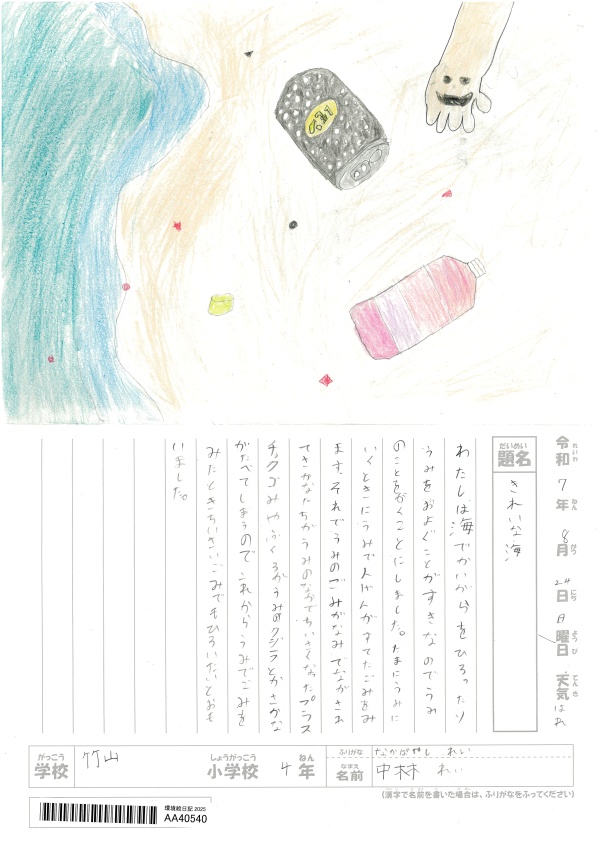 令和7年8月24日日曜日 天気はれ
れいわ ねん がつ にち よう び てん き
だいめい
題名 きれいな海
わたしは海でかいがらをひろったり
うみをおよぐことがすきなのでうみ
のことをかくことにしました。たまにうみに
いくときにうみで人がすてたごみをみ
ます。それでうみのごみがなみでながされ
てさかなたちがうみのなかでちいさくなったプラス
チックゴミやふくろがうみのクジラとかさかな
がたべてしまうのでこれからうみでごみを
みたときちいさいごみでもひろいたいとおも
いました。
がっこう しょうがっこう ねん
学校 竹山 小学校 4年
ふりがな なかばやし れい
なまえ
名前 中林 れい
(漢字で名前を書いた場合は、ふりがなをふってください)
環境絵日記 2025
AA40540